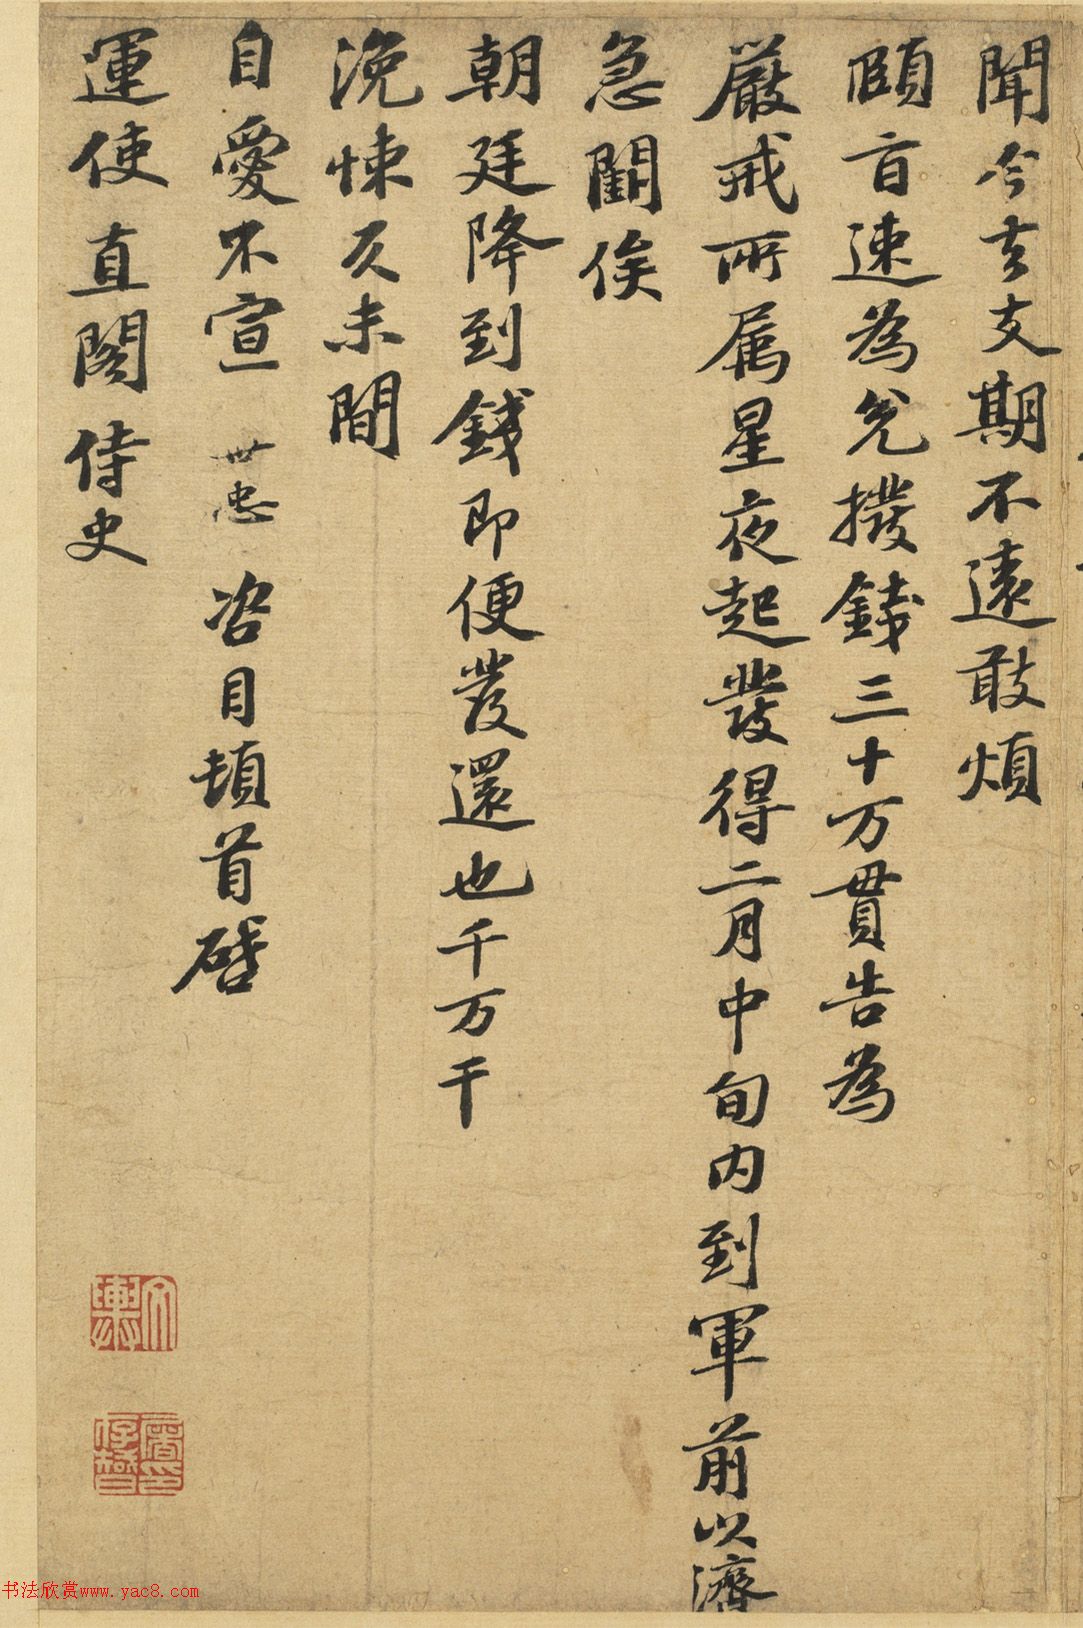 聞今去支期不遠敢煩
頤旨速為兌撥錢三十万貫告為
嚴戒所属星夜起發得二月中旬内到軍前以濟
急闕俟
朝廷降到錢即便發還也千万千
浼悚久未間
自愛不宣 世忠 咨目頓首啓
運使直閣侍史
书法欣赏www.yac8.com